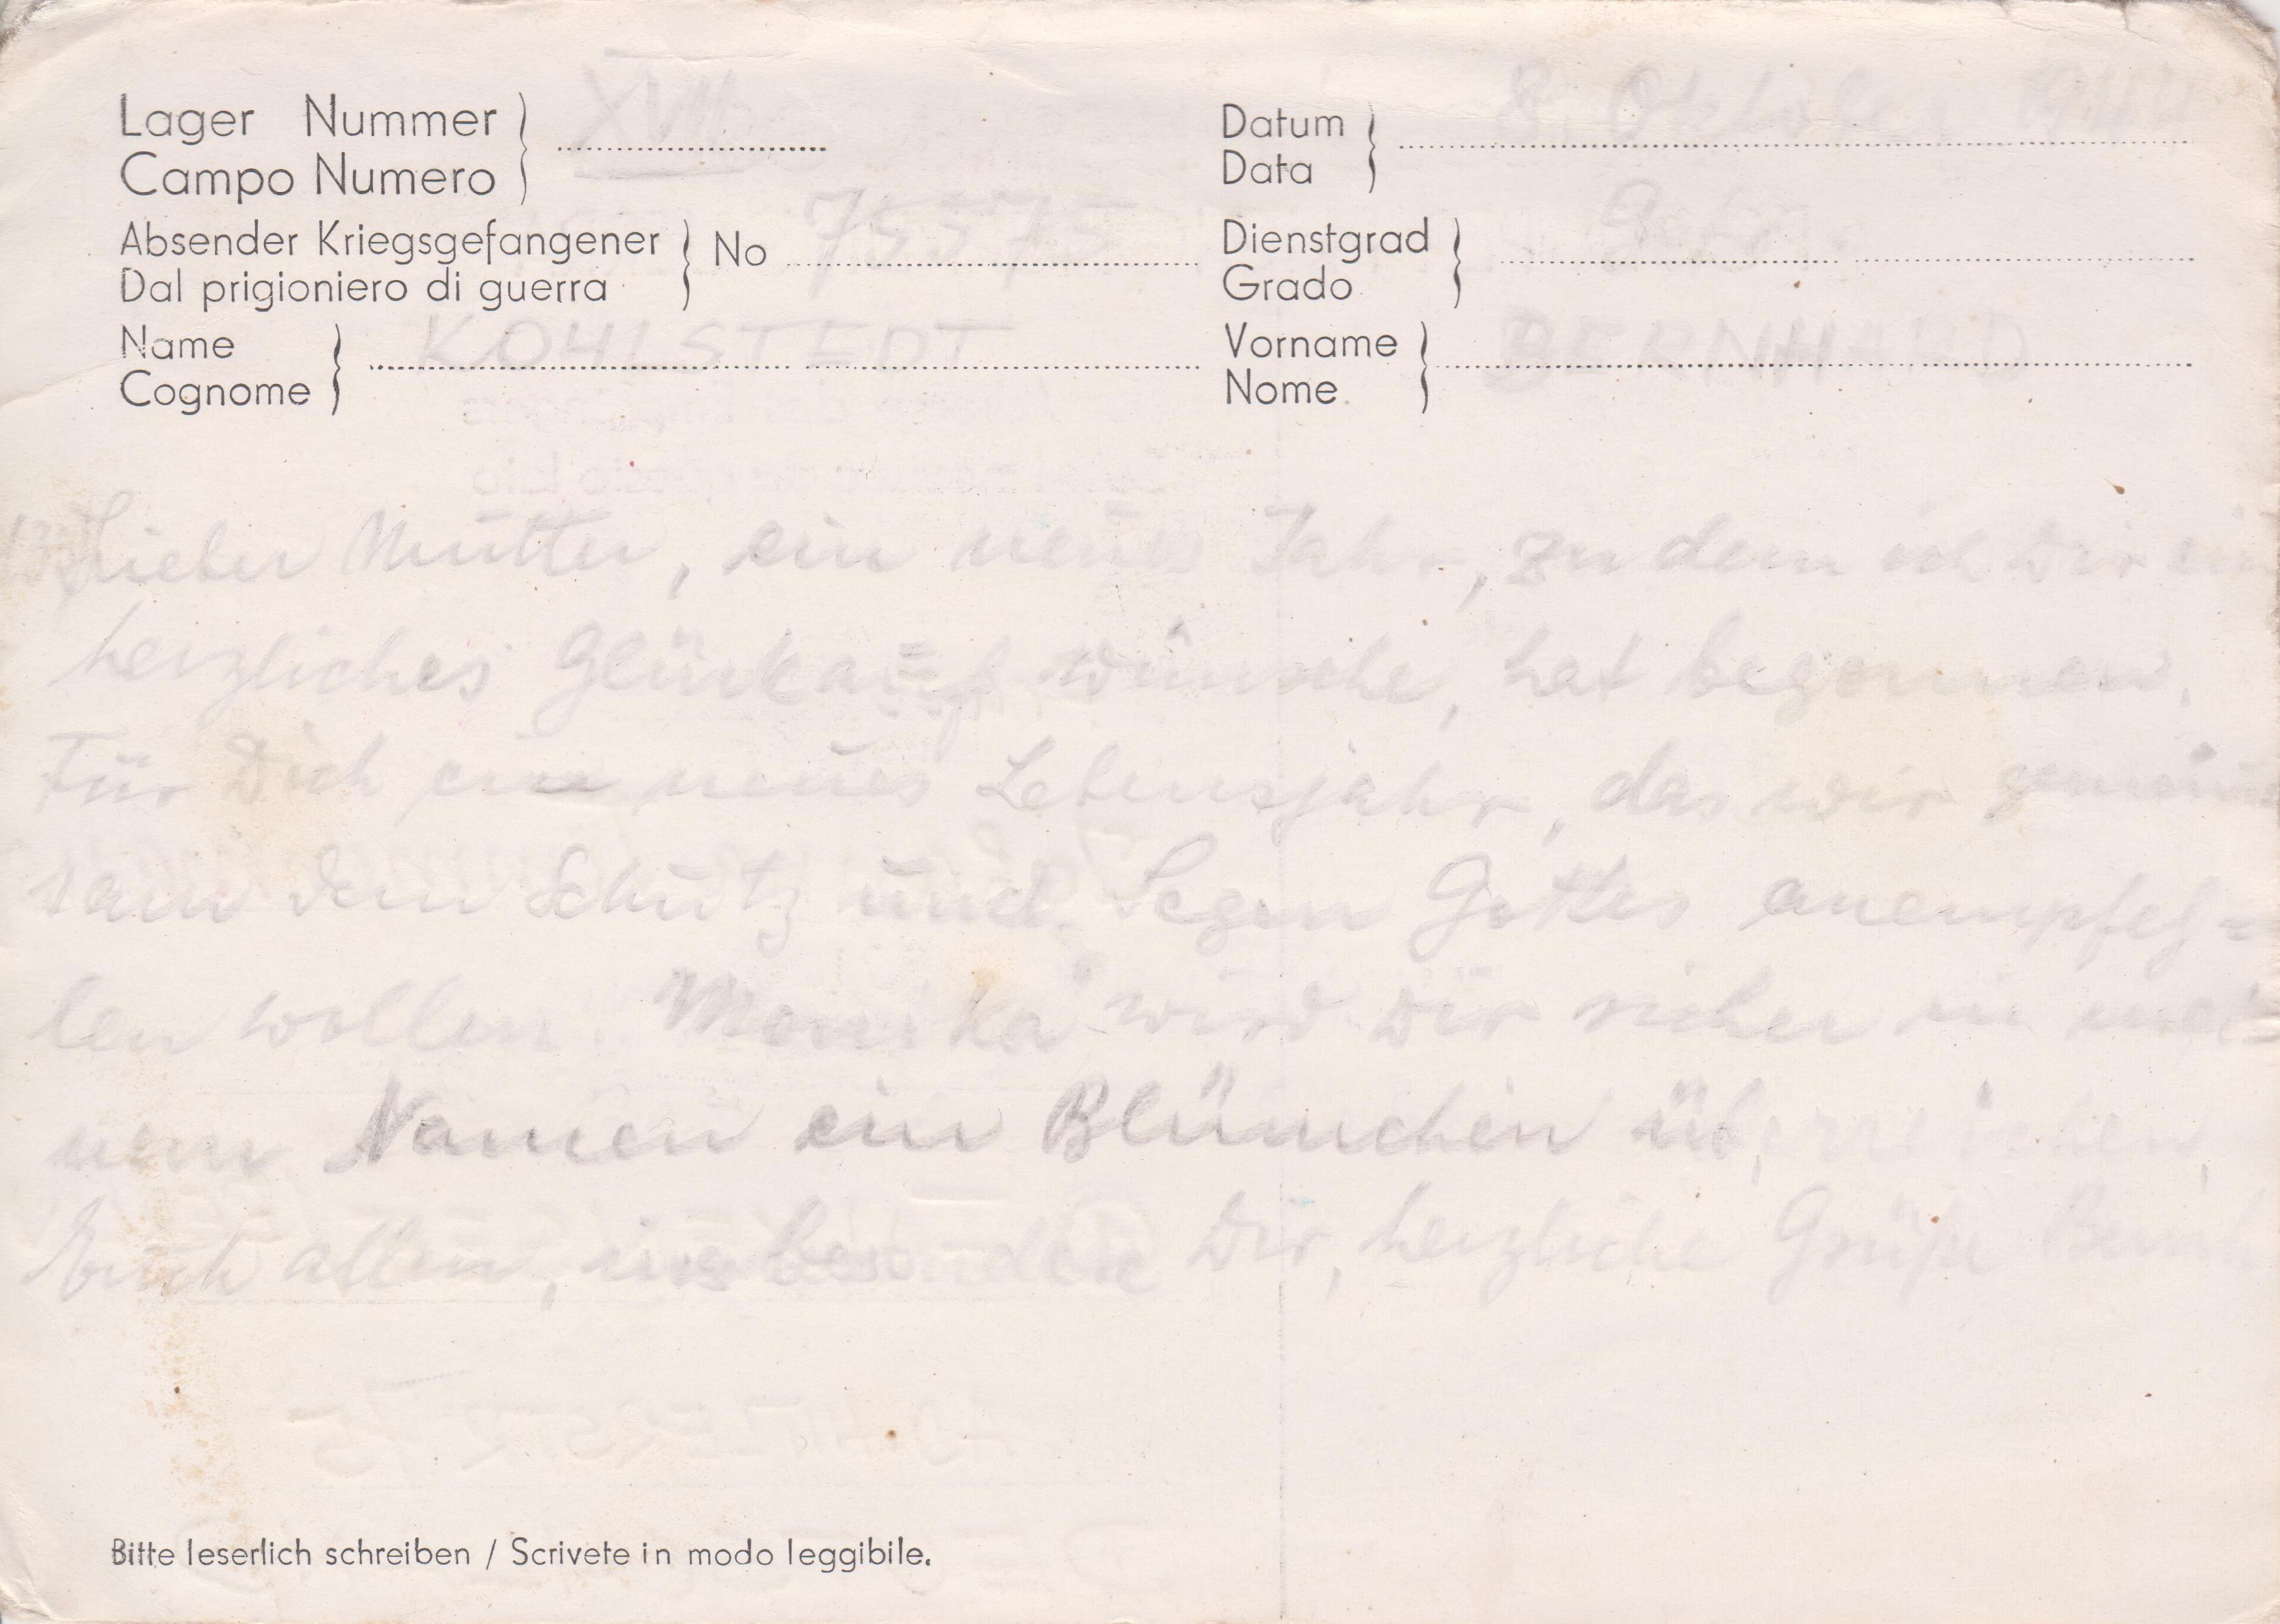 Lager Nummer XVII Datum 8. Oktober 1944
Campo Numero Data
Absender Kriegsgefangener No 75575 Dienstgrad
Dal prigioniero di guerra Grado
Name KOHLSTEDT Vorname BERNHARD
Cognome Nome
Lieber Mutter, ein neues Jahr, zu dem ich Dir ein
herzliches Glückauf wünsche, hat begonnen.
Für Dich ein neues Lebensjahr, das wir gemein
sam dem Schutz und Segen Gottes anempfeh=
len wollen. Monika wird Dir sicher in mei=
nem Namen ein Blümchen überreichen.
Euch allen, insbesondere Dir, herzliche Grüße
Bitte leserlich schreiben / Scrivete in modo leggibile.